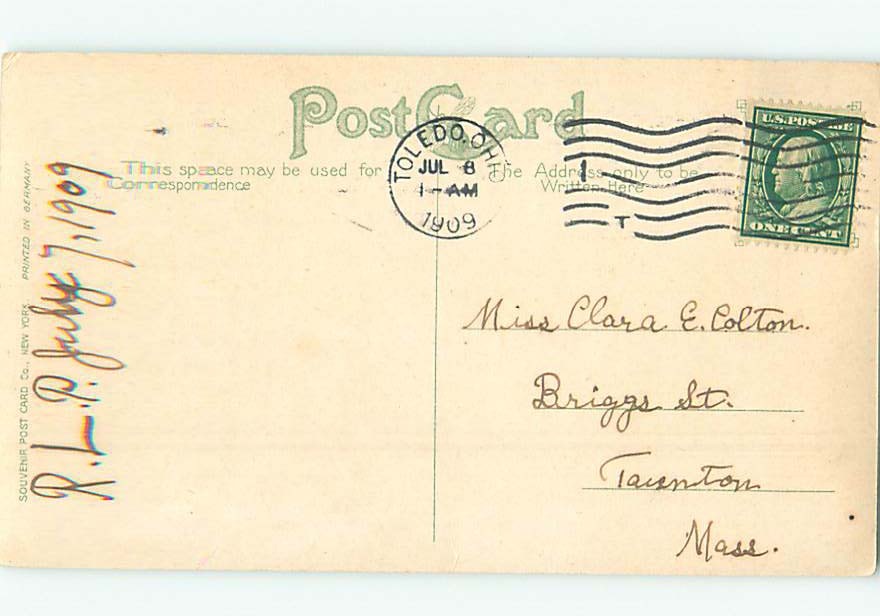 Post Card
This space may be used for
Correspondence
The Address only to be
Written Here
TOLEDO, OHIO
JUL 8
1-AM
1909
1
T
U.S. POSTAGE
ONE CENT
Miss Clara E. Colton.
Briggs St.
Taunton
Mass.
R. L. P. July 7, 1909
SOUVENIR POST CARD Co., NEW YORK. PRINTED IN GERMANY